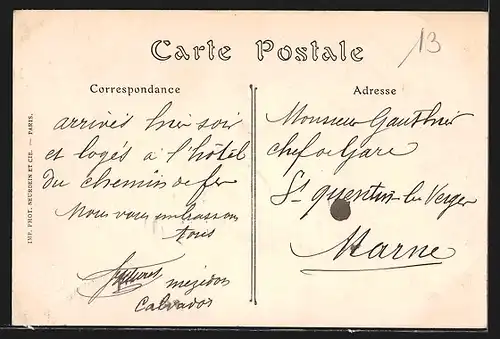 Carte Postale
13
Correspondance
arrivés hier soir
et logés à l'hôtel
du chemin de fer
Nous vous embrassons
tous
mézidon
Calvados
Adresse
Monsieur Gauthier
chef de Gare
St quentin les Verger
Marne
IMP. PHOT. NEURDEIN ET CIE. — PARIS.